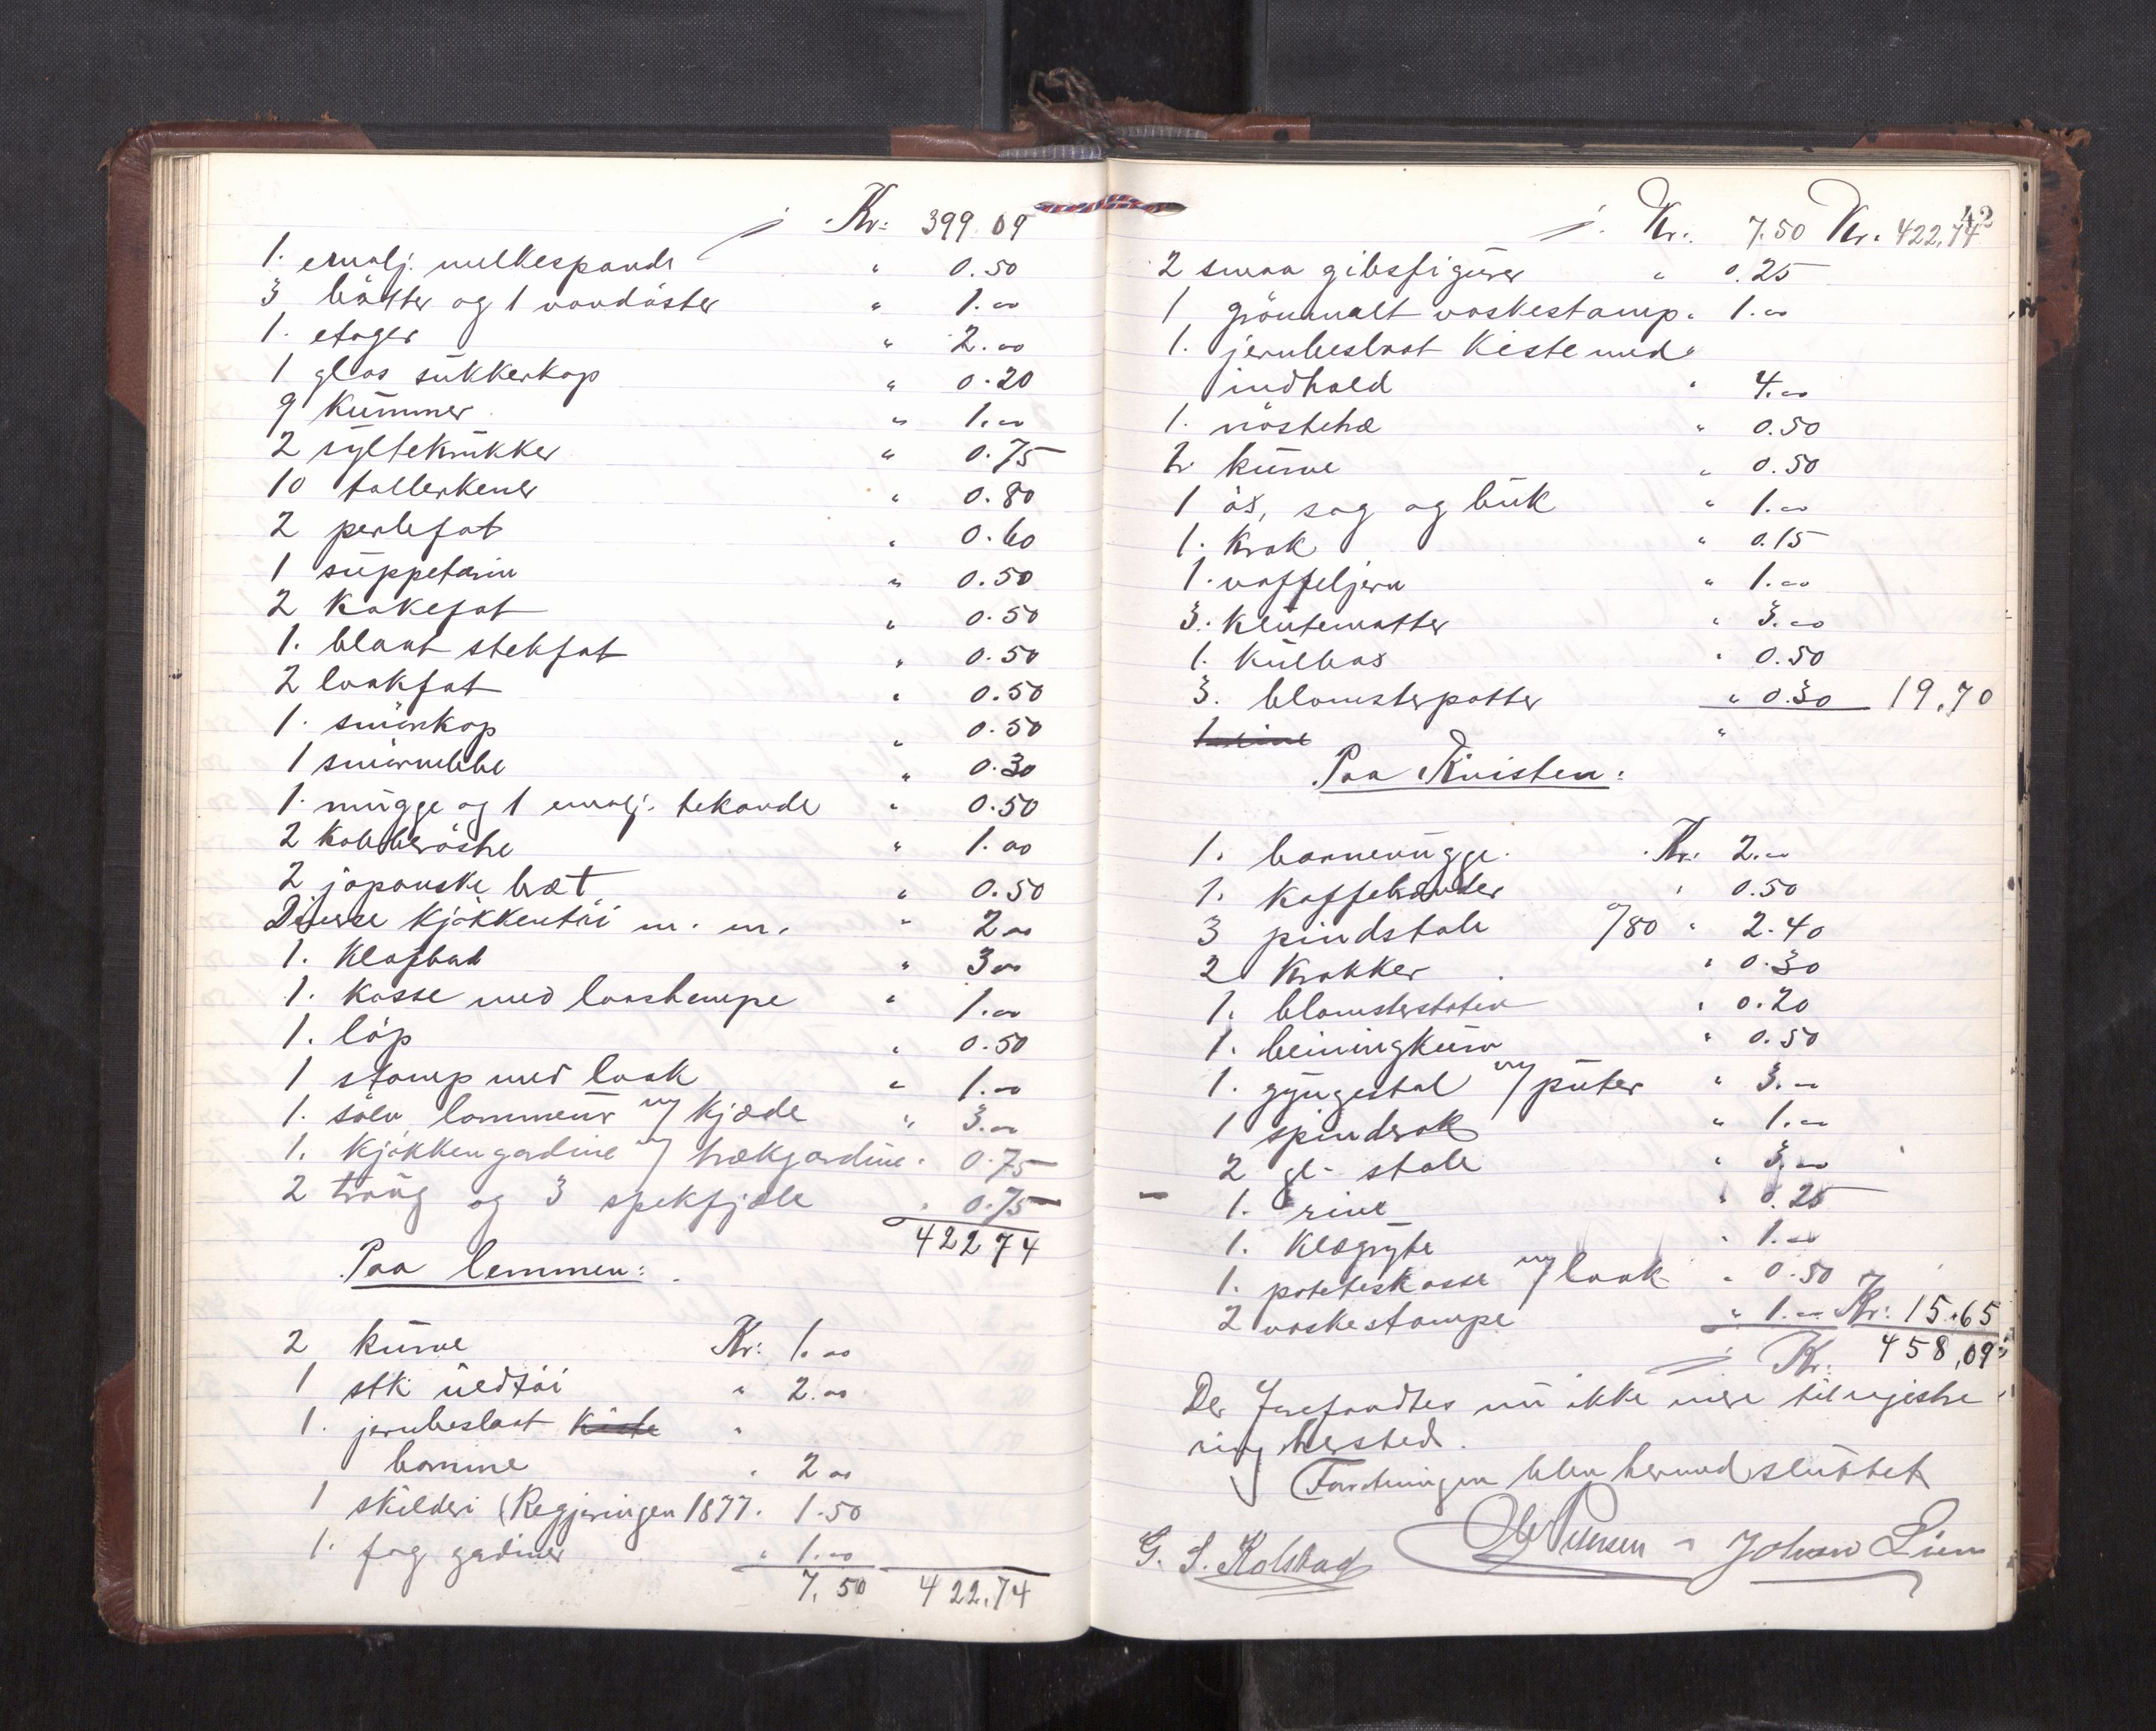 Kr: 399.09
1. emalj. melkespande " 0.50
3 bötter og 1 vandöster " 1.00
1. etager " 2.00
1 glas sukkerkop " 0.20
9 Kummer " 1.00
2 syltekrukker " 0.75
10 tallerkener " 0.80
2 perlefat " 0.60
1 suppeterin " 0.50
2 Kakefat " 0.50
1. blaat stekfat " 0.50
2 laakfat " 0.50
1. smörkop " 0.50
1 smör " 0.30
1. mugge og 1 emalj. tekande " 0.50
2 " 1.00
2 japanske bræt " 0.50
Diverse Kjökkentöi m. m. " 2.00
1. Klafbad " 3.00
1. Kasse med " 1.00
1. löp " 0.50
1 stamp med laak " 1.00
1. sölv lommeur m/ Kjæde " 3.00
1. Kjökkengardine m/ trækgardine " 0.75
2 traug og 3 spekfjæle " 0.75
422 74
Paa lemmen:
2 kurve Kr: 1.00
1 stk uldtöi " 2.00
1. jernbeslaat Kiste "
bomme " 2.00
1 skilderi (Regjeringen 1877. 1.50
1. fag gardiner " 1.00
7.50 422.74
42
Kr. 7.50 Kr. 422.74
2 smaa gibsfigurer " 0.25
1 grönmalt vaskestamp " 1.00
1. jernbeslaat Kiste med
indhold " 4.00
1. nöstetræ " 0.50
2. kurve " 0.50
1 öx, sag og buk " 1.00
1. Krak " 0.15
1. vaffeljern " 1.00
3. Klutematter " 3.00
1. Kulbas " 0.50
3. blomsterpotter " 0.30 19.70
Paa Kvisten:
1. barnevugge Kr. 2.00
1. Kaffebrænder " 0.50
3 pindstole a/80 " 2.40
2 Krakker " 0.30
1. blomsterstativ " 0.20
1. beiningkurv " 0.50
1. gyngestol m/ puter " 3.00
1 spinderok " 1.00
2 gl. stole " 3.00
1. rive " 0.25
1. Klægryte " 1.00
1. poteteskasse m/ laak " 0.50
2 vaskestampe " 1.00 Kr: 15.65
Kr. 458,09
Der forefandtes nu ikke mere til registre
ring hersted.
Forretningen blev hermed sluttet
G. S. Kolstad Johan Lien